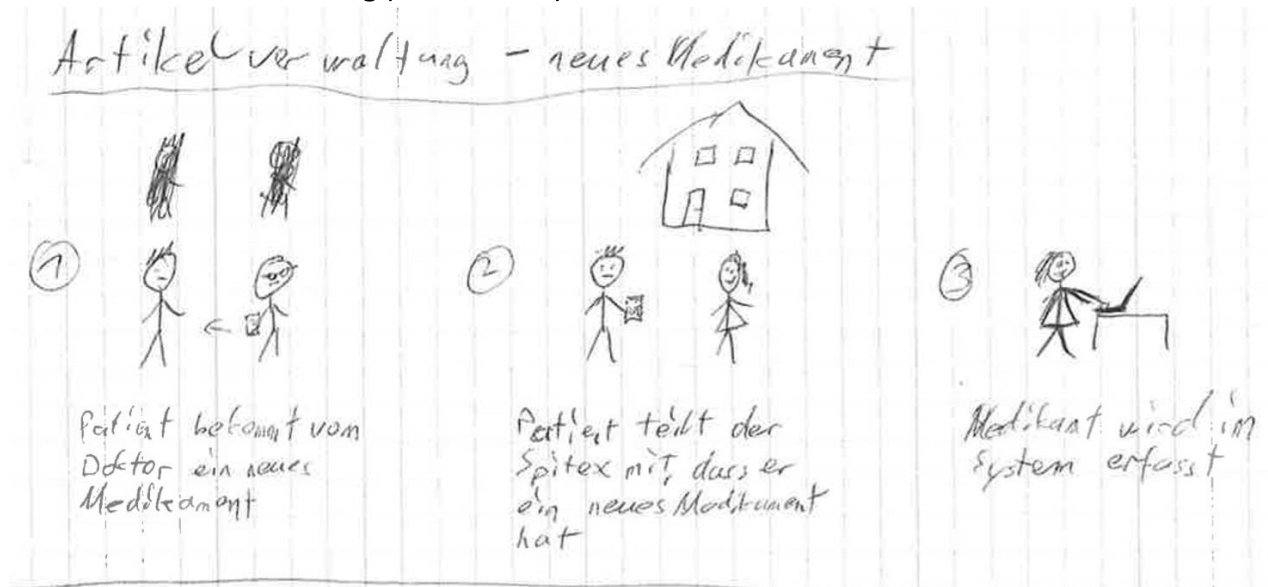 Artikelverwaltung - neues Medikament
1
2
3
Patient bekommt vom
Doktor ein neues
Medikament
Patient teilt der
Spitex mit, dass er
ein neues Medikament
hat
Medikant wird im
System erfasst